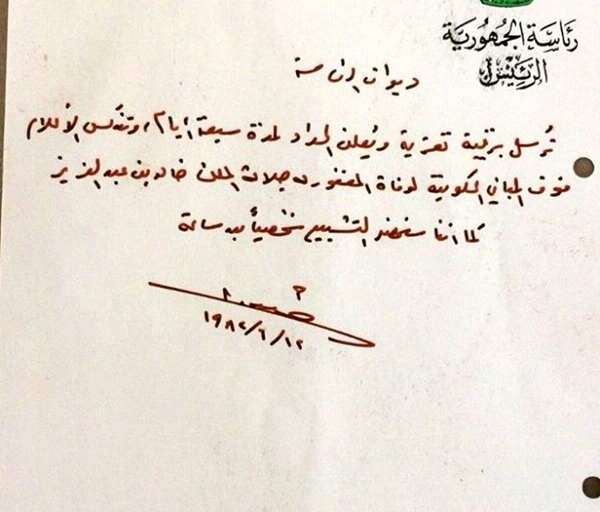 رئاسة الجمهورية
الرئيس
ديوان الرئاسة
تُرسل برقية تعزية ويُعلن الحداد لمدة سبعة أيام، وتنكس الأعلام
فوق المباني الحكومية لوفاة المغفور له جلالة الملك خالد بن عبد العزيز
كما اننا سنحضر التشييع شخصياً بعد ساعة
١٩٨٢/٦/١٢